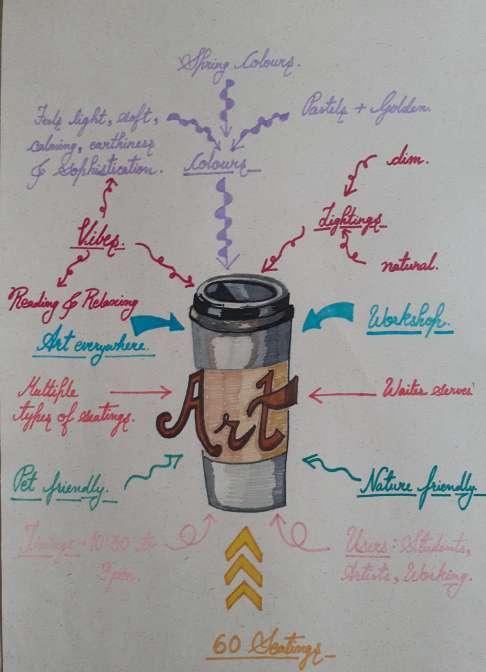 Spring Colours.
Feels light, soft,
calming, earthiness
& Sophistication.
Pastels + Golden.
Colours
dim.
Lightings
natural.
Vibes.
Reading & Relaxing
Art everywhere.
Workshop.
Art
Multiple
types of seatings.
Waiter serves
Pet friendly.
Nature friendly
Timings - 10:30 to
9pm.
Users: Students,
Artists, Working.
60 Seatings